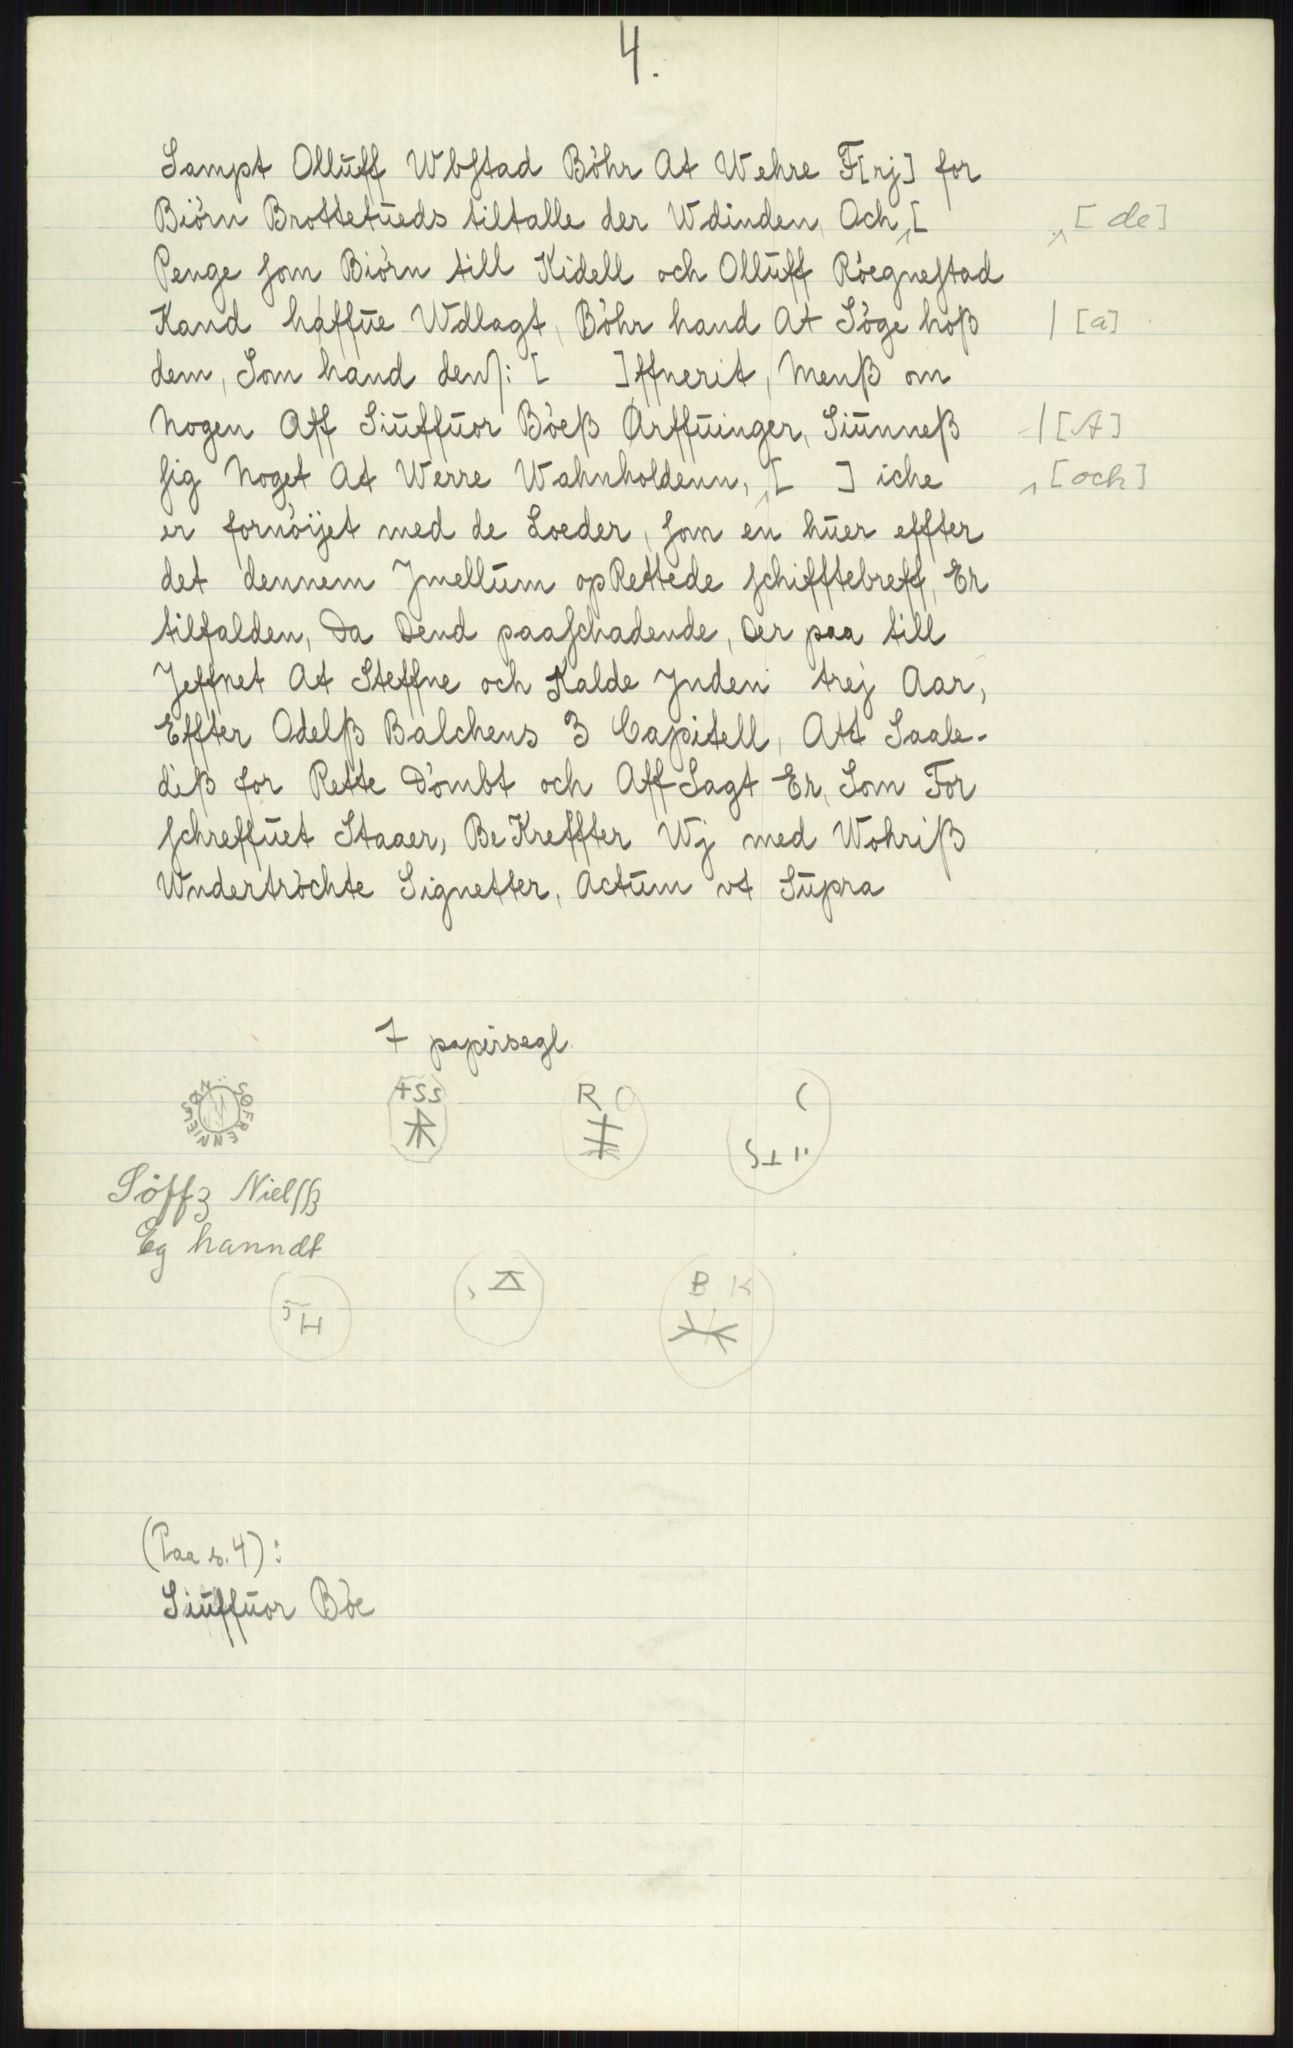 4.
Sampt Olluff Wbstad Böhr At Wehre F[rj] for
Biörn Brottetueds tiltalle der Wdinden, Och, [ [de]
Penge som Biörn till Kidell och Olluff Röegnestad
Kand haffue Wdlagt, Böhr hand At Söge hoß | [a]
dem, Som hand den/: [ ]ffnerit, Menß om
Nogen Aff Siuffuor Böeß Arffuinger, Siunneß | [A]
sig Noget At Werre Wahnholdenn, [ ] iche [och]
er fornöijet med de Loeder, som en huer effter
det dennem Jmellum opRettede schifftebreff, Er
tilfalden, Da Dend paaschadende, Oer paa till
Jeffnet At Steffne och Kalde Jnden trej Aar,
Effter Odelß Balchens 3 Capitell, Att Saale-
diß for Rette Dömbt och AffSagt Er, Som For
schreffuet Staaer, BeKreffter Wj med Wohriß
Wndertröchte Signetter, Actum vt Supra
7 papirsegl.
SØFREN NIELSØN
+SS
R O
Söff3 Nielß
Eg hanndt
H
B K
(Paa s. 4):
Siuffuor Böe